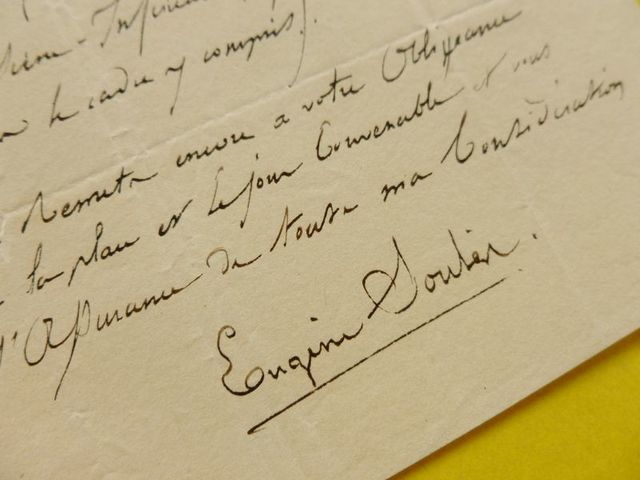 Seine-Inférieure
le cadre y compris).
Remets encore à votre Obligeance
la place et le jour Convenable et vous
l'Assurance de toute ma Considération
Eugène Soulier.